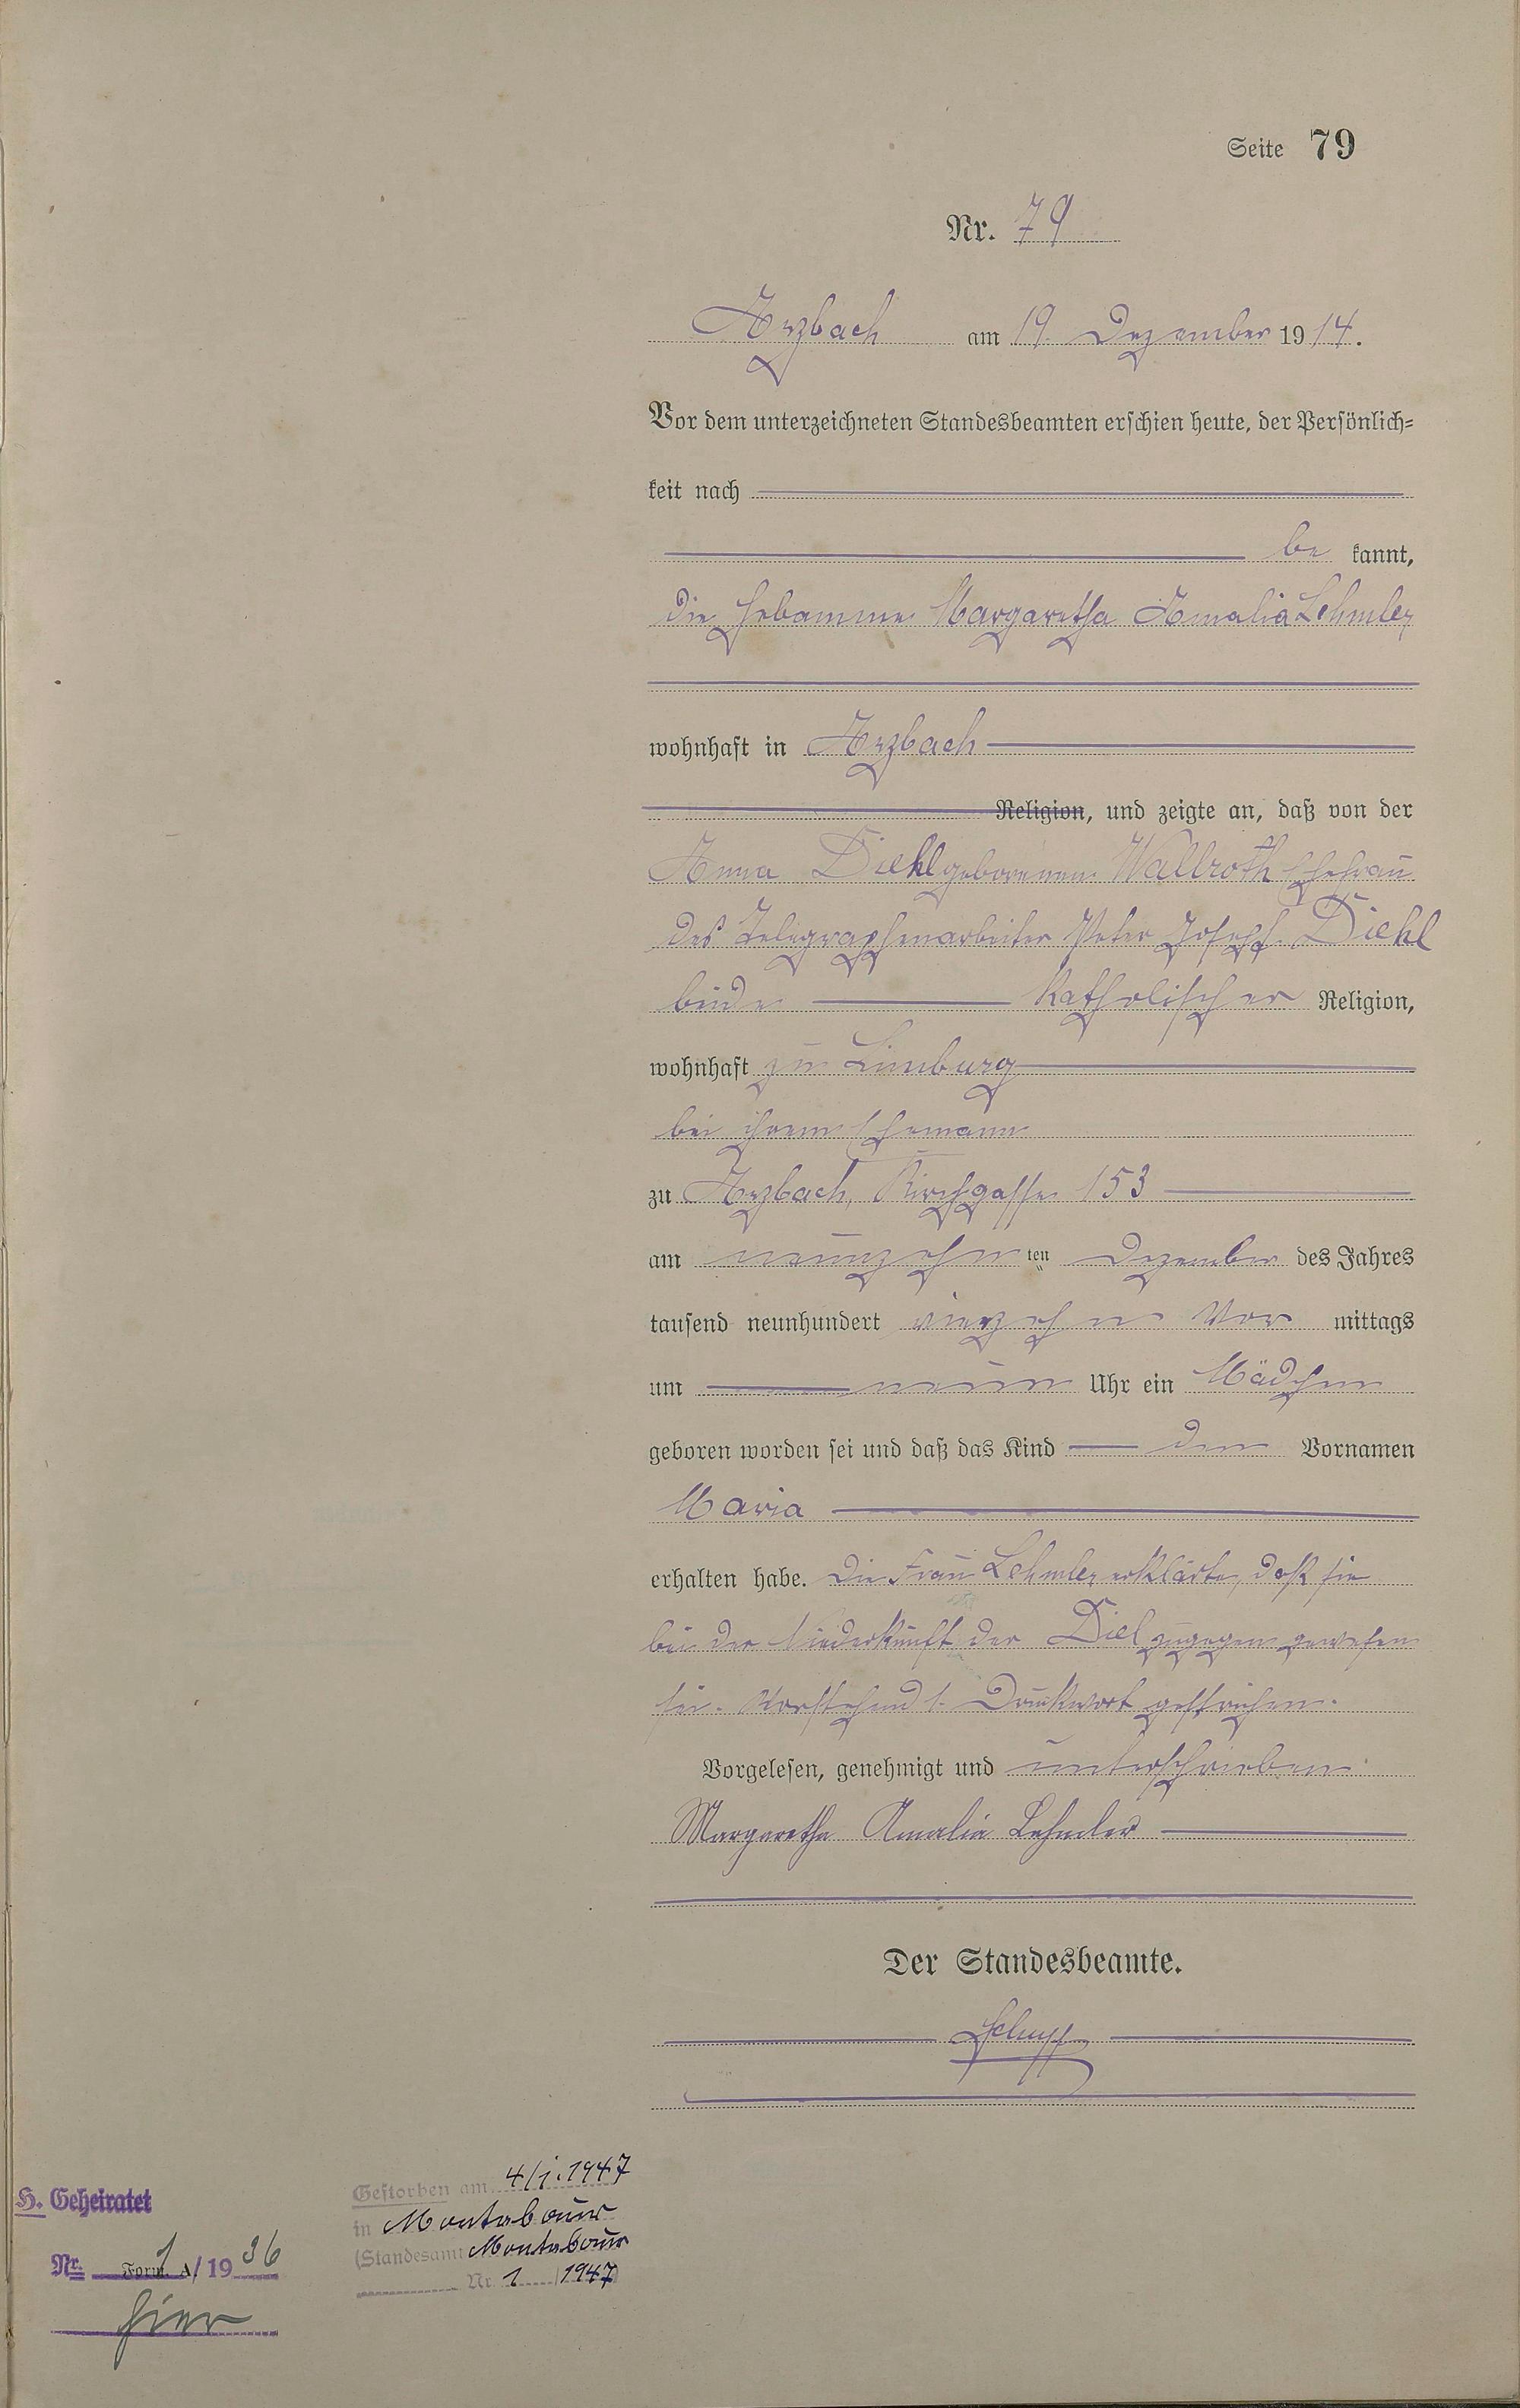 Seite 79
Nr. 79
Arzbach am 19. Dezember 1914.
Vor dem unterzeichneten Standesbeamten erschien heute, der Persönlich-
keit nach
be kannt,
die Hebamme Margaretha Amalia Lehmler
wohnhaft in Arzbach
Religion, und zeigte an, daß von der
Anna Diehl geborenen Wallroth Ehefrau
des Telegraphenarbeiter Peter Joseph Diehl
beide katholischer Religion,
wohnhaft zu Limburg
bei ihrem Ehemann
zu Arzbach, Kirchgasse 153
am neunzehn ten Dezember des Jahres
tausend neunhundert vierzehn Vor mittags
um neun Uhr ein Mädchen
geboren worden sei und daß das Kind den Vornamen
Maria
erhalten habe. Die Frau Lehmler erklärte, daß sie
bei der Niederkunft der Diel zugegen gewesen
sei. Vorstehend 1. Druckwort gestrichen.
Vorgelesen, genehmigt und unterschrieben
Margaretha Amalia Lehmler
Der Standesbeamte.
Schupp
H. Geheiratet
Nr. 1 / 1936
hier
Form. A
Gestorben am 4/1.1947
in Montabaur
(Standesamt Montabaur
Nr. 1 / 1947)